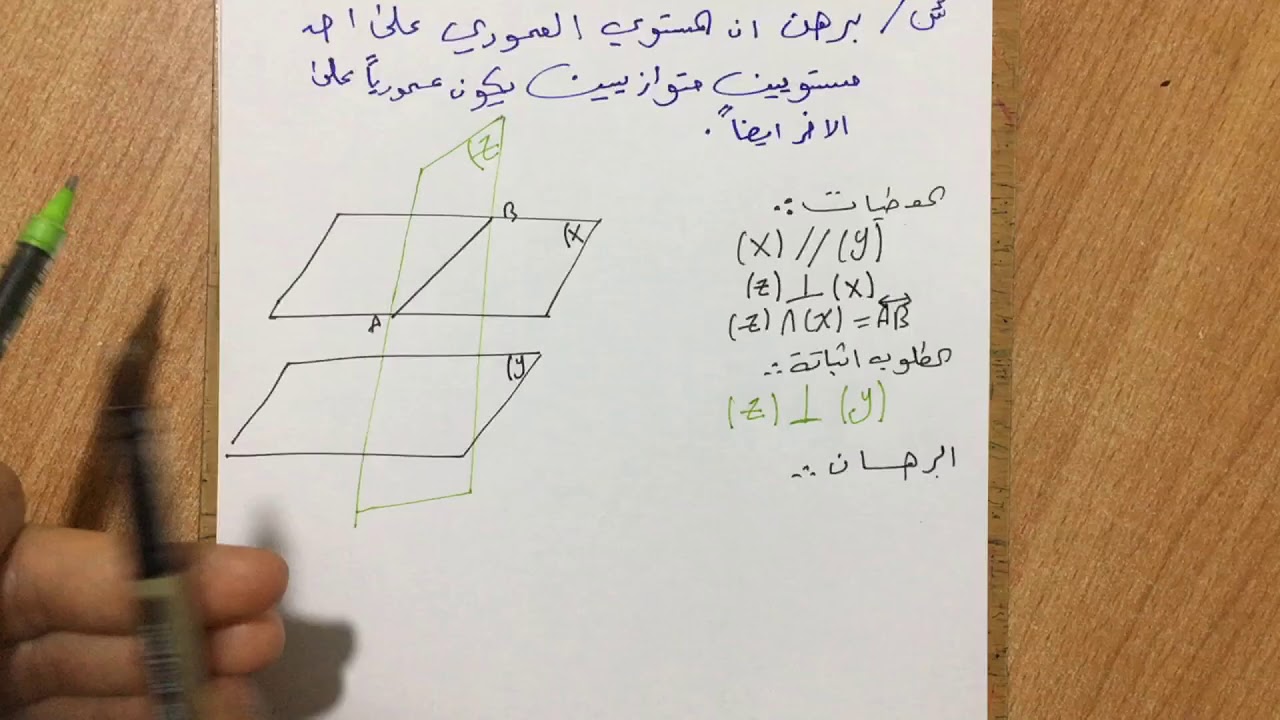 س / برهن ان المستوي العمودي على احد
مستويين متوازيين يكون عمودياً على
الاخر ايضاً.
(Z)
B
(X)
A
(Y)
المعطيات :.
(X) // (Y)
(Z) ⊥ (X)
(Z) ∩ (X) = AB
المطلوب اثباتة :.
(Z) ⊥ (Y)
البرهان :.